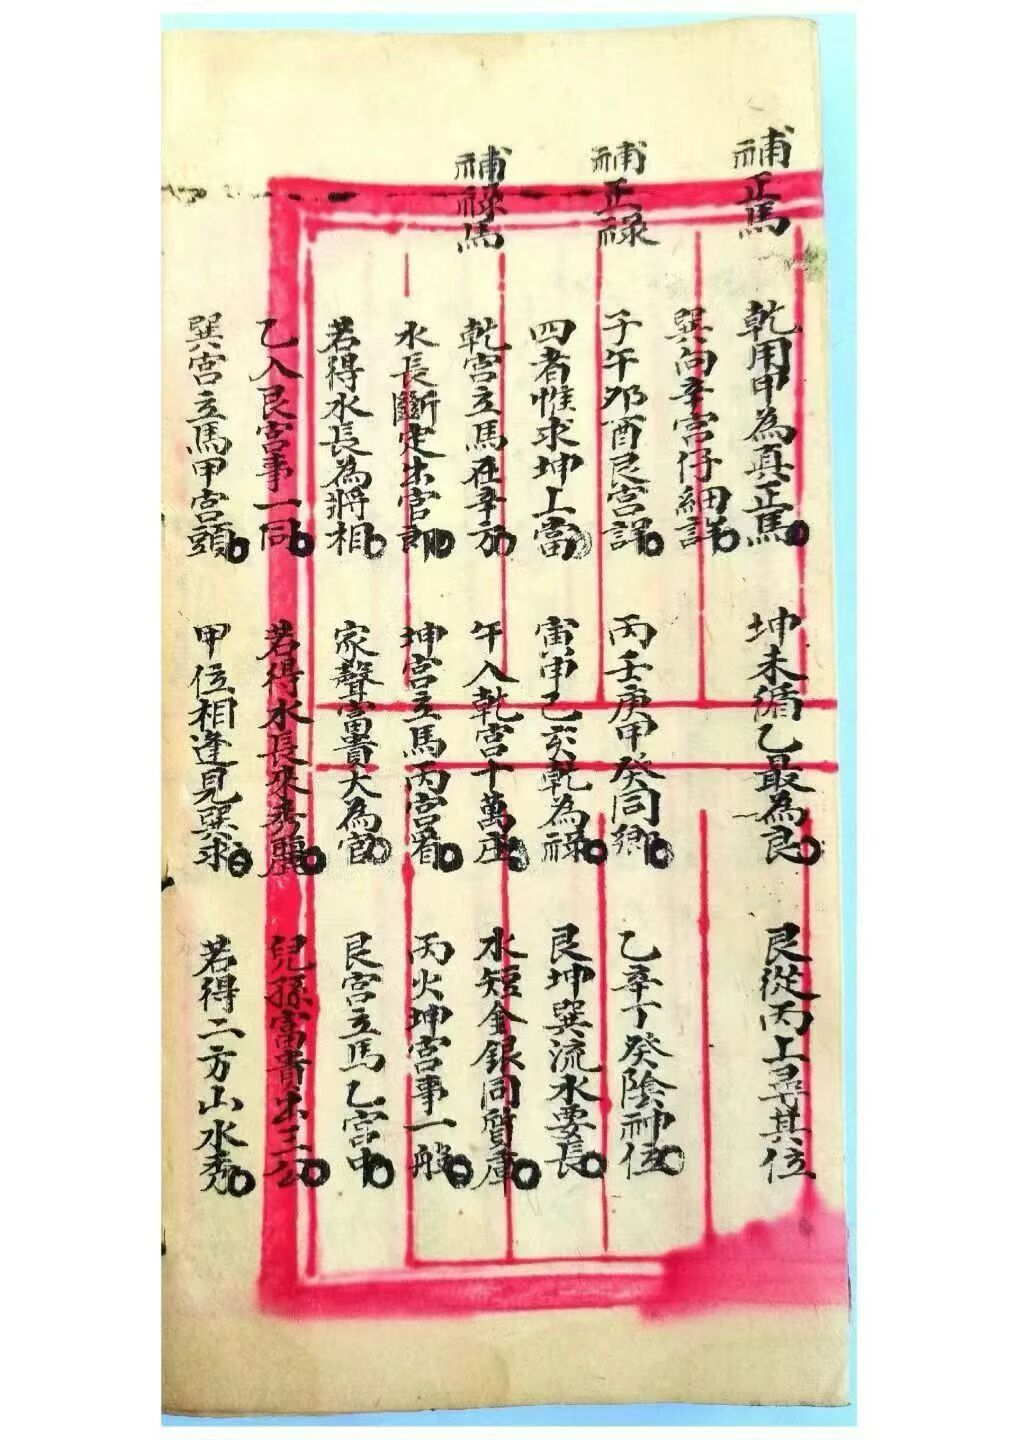 補正馬
乾用甲為真正馬 坤未循乙最為良 艮從丙上尋其位
巽向辛宮仔細詳
補正祿
子午夘酉艮宮詳 丙壬庚甲癸同鄉 乙辛丁癸陰神位
四者惟求坤上當 寅申巳亥乾為祿 艮坤巽流水要長
補祿馬
乾宮立馬在辛方 午入乾宮十萬庄 水短金銀同質庫
水長斷定出官郎 坤宮立馬丙宮看 丙火坤宮事一般
若得水長為將相 家聲富貴大為官 艮宮立馬乙宮中
乙入艮宮事一同 若得水長來秀麗 兒孫富貴出三公
巽宮立馬甲宮頭 甲位相逢見巽求 若得二方山水秀